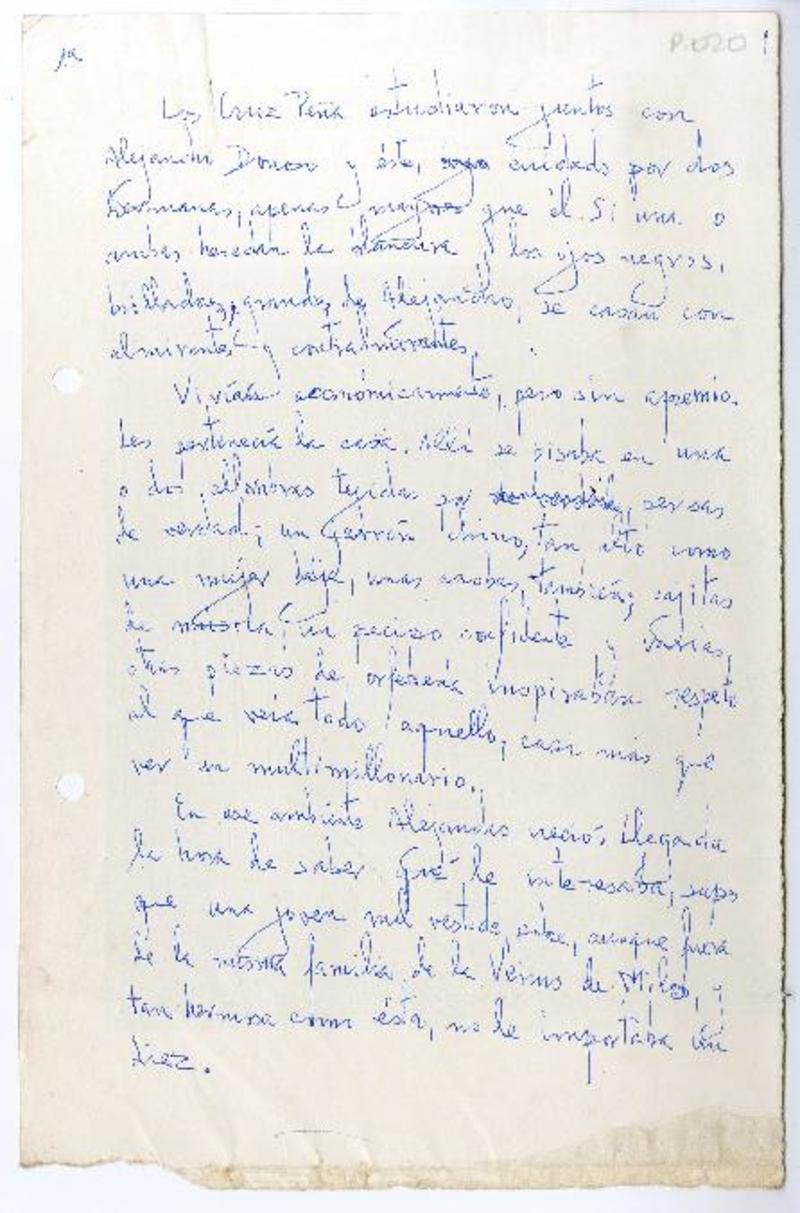 1a
P.020 1
Los Cruz Peña estudiaron juntos con
Alejandro Donoso y éste, cuidado por dos
hermanas, apenas mayores que él. Si una o
ambas heredan la blancura y los ojos negros,
brillados, grandes de Alejandro, se casan con
almirantes y contralmirantes.
Vivían económicamente, pero sin apremio.
Les pertenecía la casa. Allí se pisaba en una
o dos alfombras tejidas persas
de verdad; un jarrón chino, tan alto como
una mujer baja, unas también; cajitas
de un confidente y varias
otras piezas de orfebrería inspiraban respeto
al que veía todo aquello, casi más que
ver un multimillonario.
En ese ambiente Alejandro llegada
la hora de saber qué le interesaba, supo
que una joven mal vestida, aunque fuera
de la misma familia de la Venus de Milo, y
tan hermosa como ésta, no le importaba un
diez.